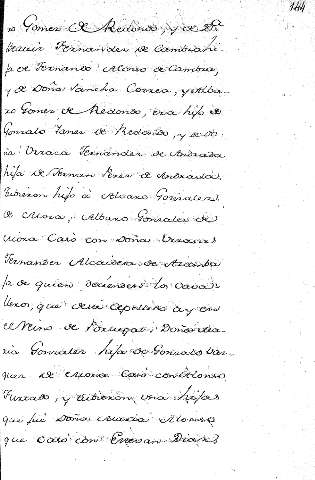 144
ro Gomez de Redondo, y de Dª
Teresa Fernandez de Cambra hi-
ja de Fernando Alonso de Cambra,
y de Doña Sancha Correa, y Alba-
ro Gomez de Redondo, era hijo de
Gonzalo Yanez de Redondo, y de Do-
ña Urraca Fernandez de Andrada
hija de Fernan Perez de Andrada.
Tubieron hijo á Alvaro Gonzalez
de Moxa, Albaro Gonzalez de
Moxa Casó con Doña Urraca
Fernandez hija de
de quien decienden los Cavá-
lleros, que deste apellido ay en
el Reino de Portugal, Doña Ma-
ria Gonzalez hija de Gonzalo Vaz-
quez de Moxa Casó con Alonso
Furtado, y tubieron una hija
que fué Doña Maria Alonso
que casó con Estevan Diaz